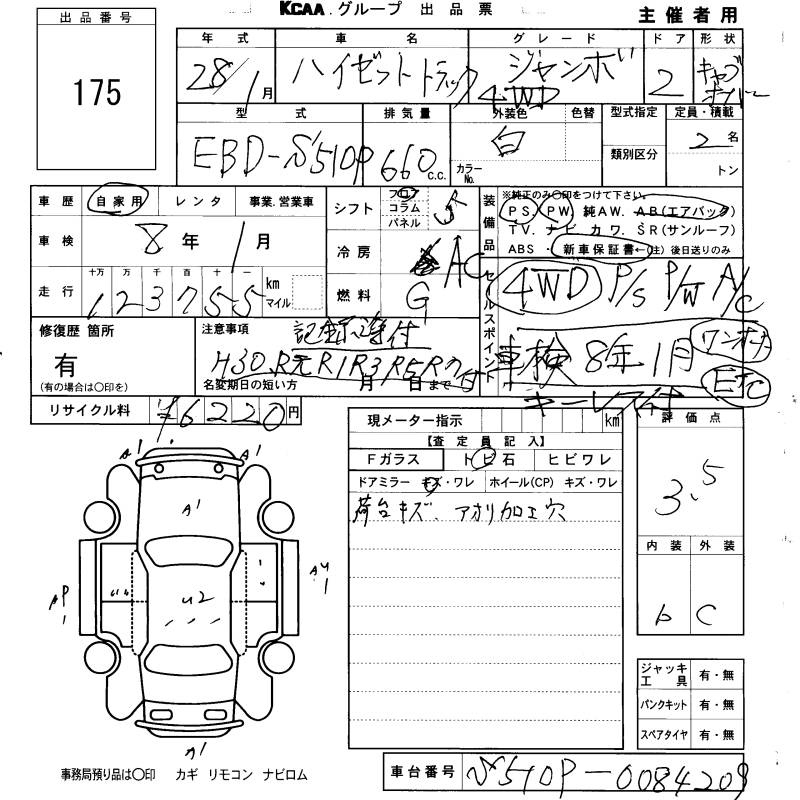 KCAA.グループ 出品票
主催者用
出品番号
175
年式 車名 グレード ドア 形状
28/1月 ハイゼットトラック ジャンボ 4WD 2 キャブオーバー
型式 排気量 外装色 色替 型式指定 定員・積載
EBD-S510P 660 c.c. 白 カラーNo. 類別区分 2名 トン
車歴 自家用 レンタ 事業.営業車
車検 8年1月
走行 十万 万 千 百 十 一
123755 km マイル
シフト フロア コラム パネル
冷房 AC
燃料 G
装備品 ※純正のみ〇印をつけて下さい。
PS. PW. 純AW. AB(エアバック)
TV. ナビ. カワ. SR(サンルーフ)
ABS ・ 新車保証書←(注) 後日送りのみ
セールスポイント
4WD P/S P/W A/C
車検 8年1月 ワンオーナー
キーレス付 ETC
修復歴 箇所
有
(有の場合は〇印を)
注意事項 記録簿付
H30.R元R1R3R5R7付
名変期日の短い方 月 日まで
リサイクル料 ¥6220円
現メーター指示 km
【査定員記入】
Fガラス トビ石 ヒビワレ
ドアミラー キズ・ワレ ホイール(CP) キズ・ワレ
荷台キズ、アオリ加工穴
評価点
3.5
内装 外装
b C
A1 A1
A1
U2
AP1
AU1
A1
ジャッキ工具 有・無
パンクキット 有・無
スペアタイヤ 有・無
事務局預り品は〇印 カギ リモコン ナビロム
車台番号 S510P-0084209